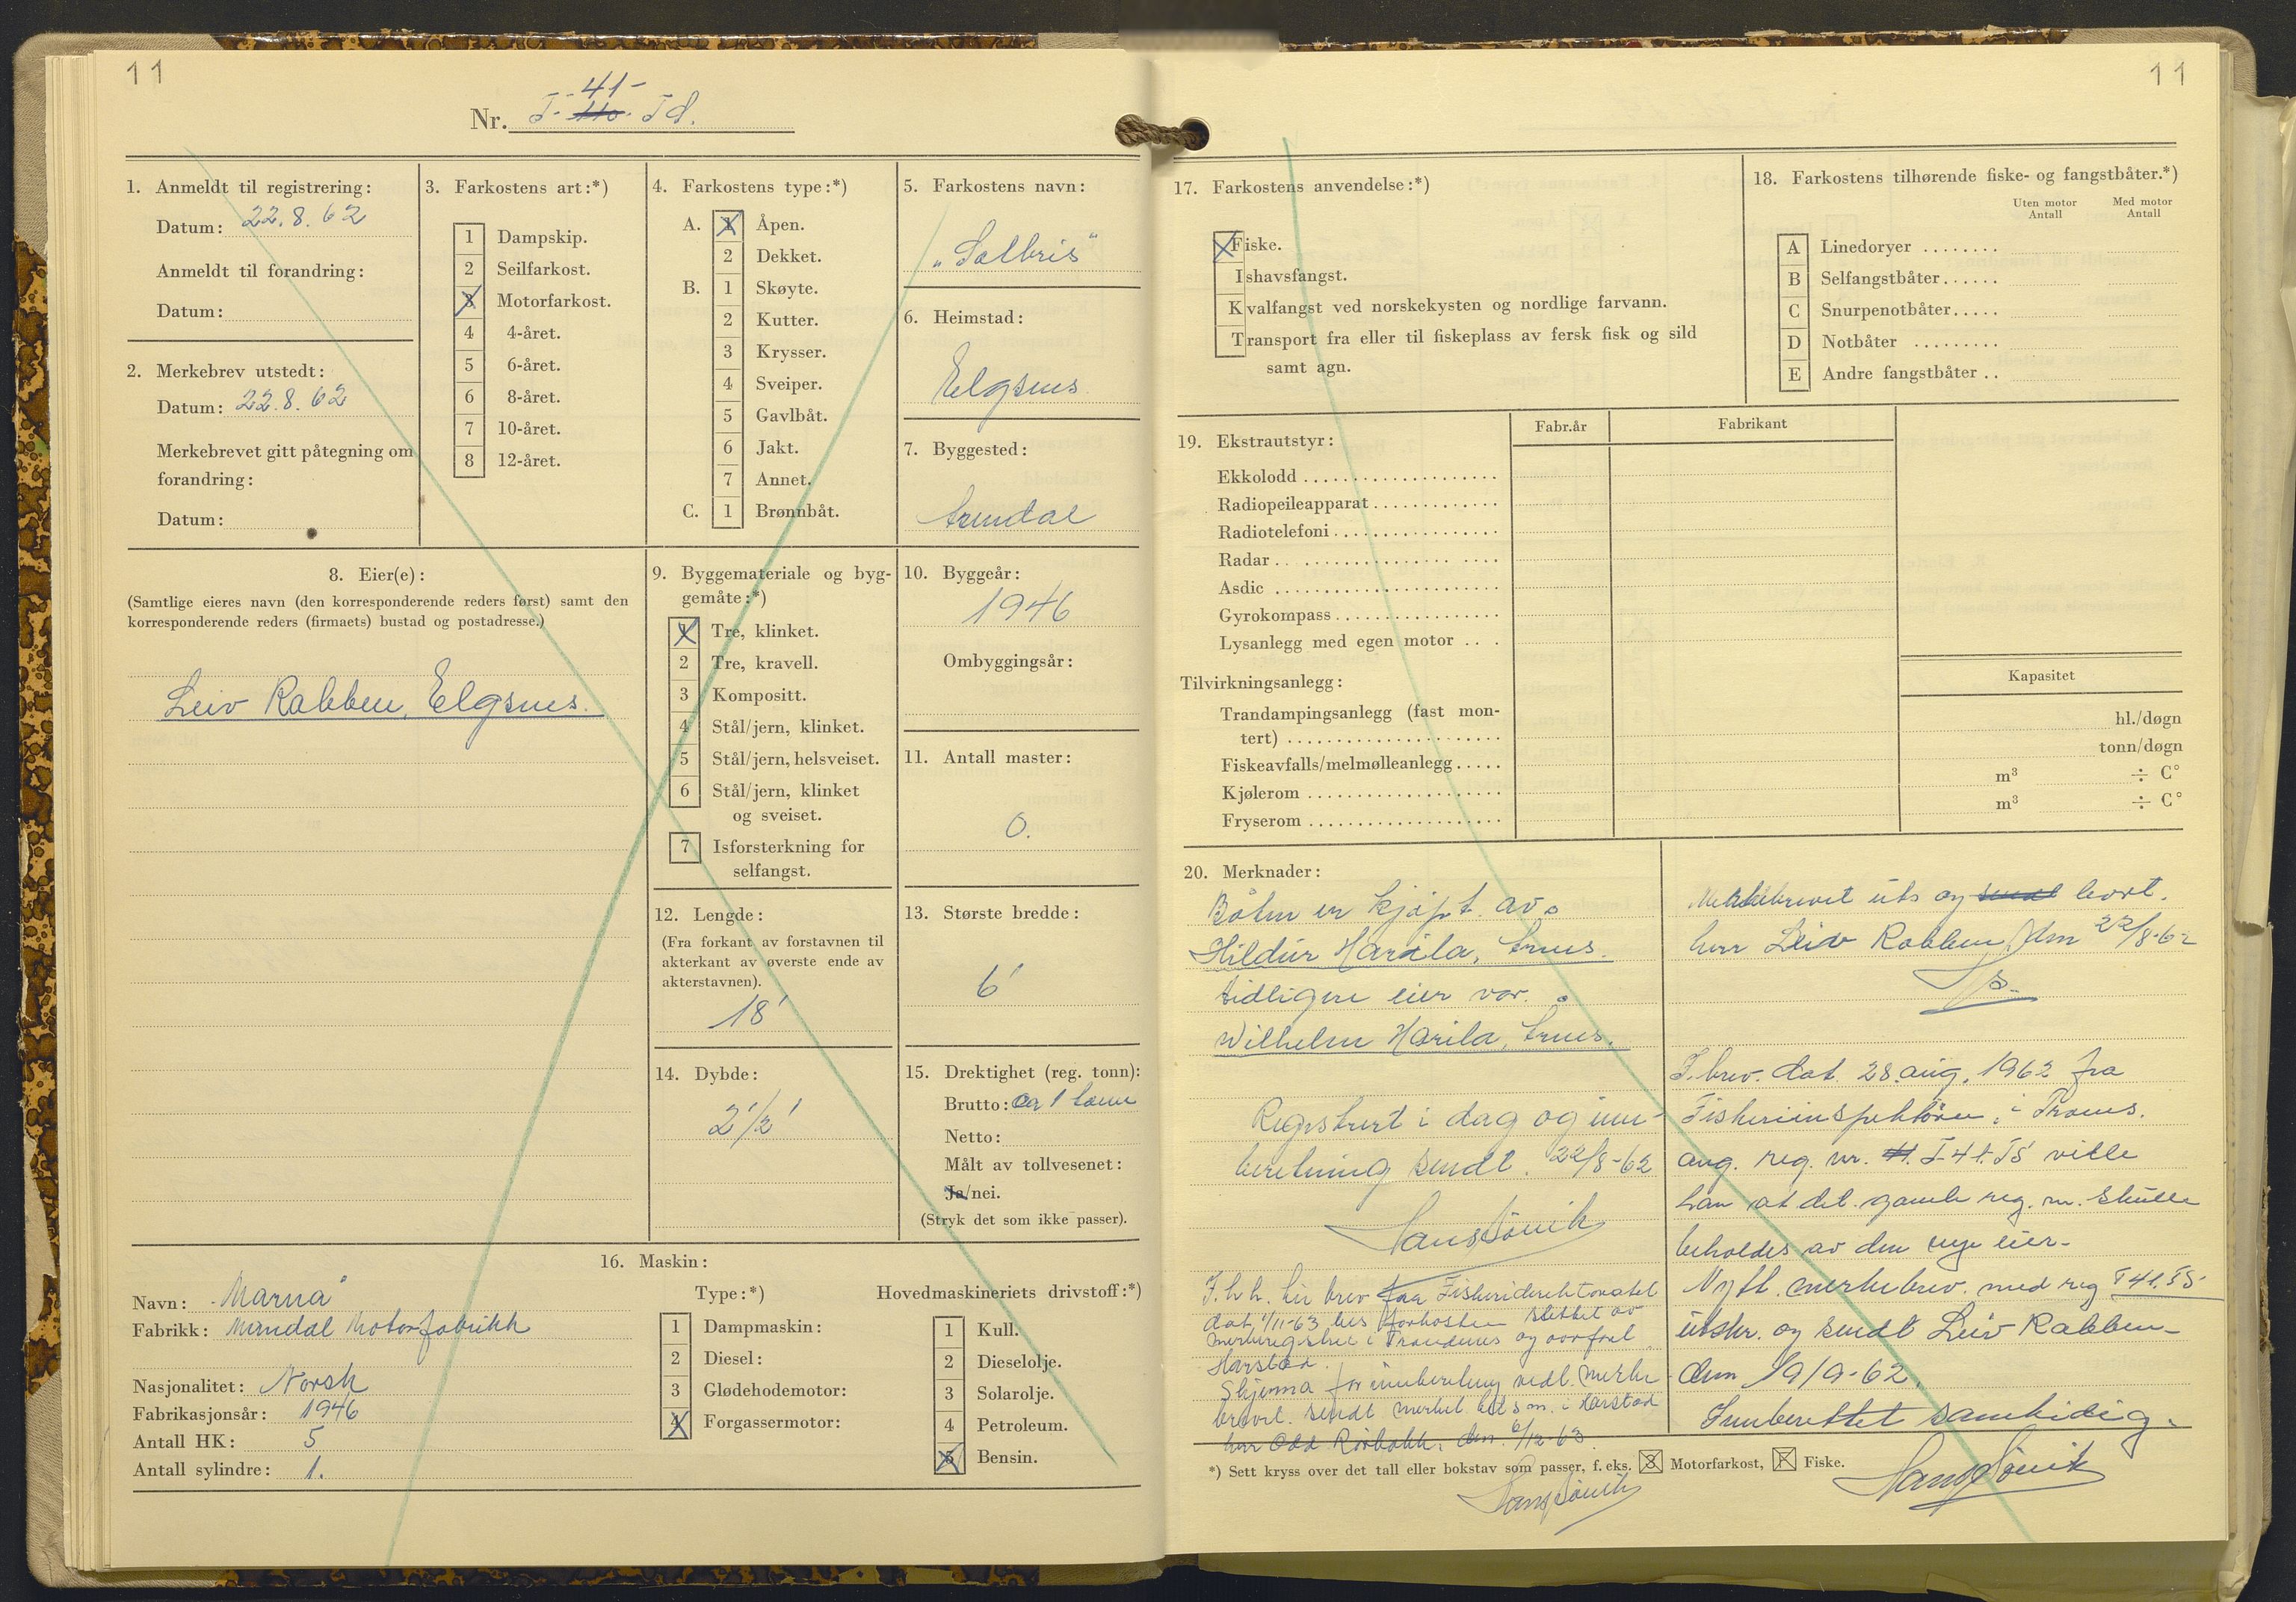 11
Nr. T-110-Td.
-41-
1. Anmeldt til registrering:
Datum: 22.8.62
Anmeldt til forandring:
Datum:
2. Merkebrev utstedt:
Datum: 22.8.62
Merkebrevet gitt påtegning om
forandring:
Datum:
3. Farkostens art:*)
1 Dampskip.
2 Seilfarkost.
3 Motorfarkost.
4 4-året.
5 6-året.
6 8-året.
7 10-året.
8 12-året.
4. Farkostens type:*)
A. 1 Åpen.
2 Dekket.
B. 1 Skøyte.
2 Kutter.
3 Krysser.
4 Sveiper.
5 Gavlbåt.
6 Jakt.
7 Annet.
C. 1 Brønnbåt.
5. Farkostens navn:
"Solbris"
6. Heimstad:
Elgsnes
7. Byggested:
8. Eier(e):
(Samtlige eieres navn (den korresponderende reders først) samt den
korresponderende reders (firmaets) bustad og postadresse.)
Leiv Rabben, Elgsnes.
9. Byggemateriale og byg-
gemåte:*)
1 Tre, klinket.
2 Tre, kravell.
3 Kompositt.
4 Stål/jern, klinket.
5 Stål/jern, helsveiset.
6 Stål/jern, klinket
og sveiset.
7 Isforsterkning for
selfangst.
10. Byggeår:
1946
Ombyggingsår:
11. Antall master:
0.
12. Lengde:
(Fra forkant av forstavnen til
akterkant av øverste ende av
akterstavnen).
18'
13. Største bredde:
6'
14. Dybde:
2 1/2'
15. Drektighet (reg. tonn):
Brutto: ca 1 tonn
Netto:
Målt av tollvesenet:
Ja/nei.
(Stryk det som ikke passer).
16. Maskin:
Navn: Marna
Fabrikk: Mandal Motorfabrikk
Nasjonalitet: Norsk
Fabrikasjonsår: 1946
Antall HK: 5
Antall sylindre: 1.
Type:*)
1 Dampmaskin:
2 Diesel:
3 Glødehodemotor:
4 Forgassermotor:
Hovedmaskineriets drivstoff:*)
1 Kull.
2 Dieselolje.
3 Solarolje.
4 Petroleum.
5 Bensin.
11
17. Farkostens anvendelse:*)
Fiske.
Ishavsfangst.
Kvalfangst ved norskekysten og nordlige farvann.
Transport fra eller til fiskeplass av fersk fisk og sild
samt agn.
18. Farkostens tilhørende fiske- og fangstbåter.*)
Uten motor
Antall
Med motor
Antall
A Linedoryer
B Selfangstbåter
C Snurpenotbåter
D Notbåter
E Andre fangstbåter
19. Ekstrautstyr:
Fabr.år
Fabrikant
Ekkolodd
Radiopeileapparat
Radiotelefoni
Radar
Asdic
Gyrokompass
Lysanlegg med egen motor
Tilvirkningsanlegg:
Kapasitet
Trandampingsanlegg (fast mon-
tert)
hl./døgn
Fiskeavfalls/melmølleanlegg
tonn/døgn
Kjølerom
m³ ÷ C°
Fryserom
m³ ÷ C°
20. Merknader:
Båten er kjøpt av
Hildur Harila,
tidligere eier var
Wilhelm Harila,
Registrert i dag og inn-
beretning sendt. 22/8-62
Hans Sørvik
I h.h. til brev fra Fiskeridirektoratet
dat. 1/11-63 bes farkosten slettet av
merkeregistret i Trondenes og overført
Harstad.
Skjema for innberetning vedl. merke-
brevet sendt merkel. i Harstad
herr Odd Rørbakk, den 6/12-63.
Merkebrevet uts og sendt levert.
herr Leiv Rabben, den 22/8-62
I brev dat. 28. aug. 1962 fra
Fiskeriinspektøren i Troms.
ang. reg. nr. T-41-TS ville
han at det gamle reg. nr. skulle
beholdes av den nye eier.
Nytt merkebrev med reg T41.TS
utskr. og sendt Leiv Rabben-
den 19/9-62.
Innberettet samtidig.
*) Sett kryss over det tall eller bokstav som passer, f. eks. 3 Motorfarkost, F Fiske.
Hans Sørvik
Hans Sørvik